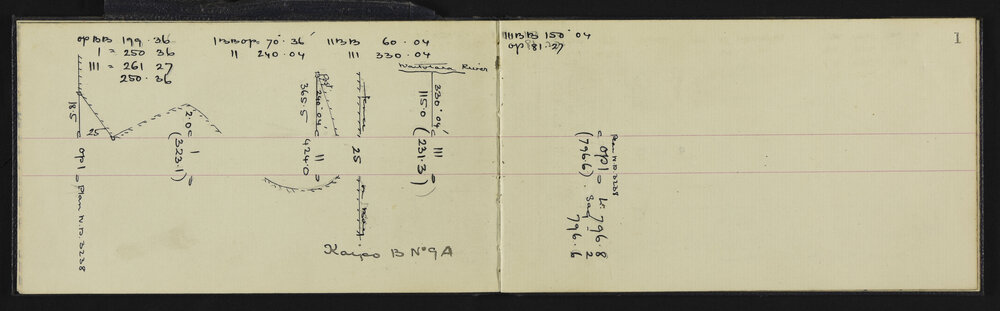 op BB 199.36
I = 250 36
III = 261 27
250.36
I BB op 70° 36'
II 240.04
II BB 60.04
III 330.04
Waitotara River
185
25
op I
Plan N.D. 3238
2.0
I
(323.1)
365.5
240°.04'
II
424.0
25
330°.04'
115.0
III
(231.3)
B No 9A
III BB 150°.04
op 81.27
1
Plan N.D. 3238
op I
(796.6)
Lr. 796.8
Sag 2
796.6